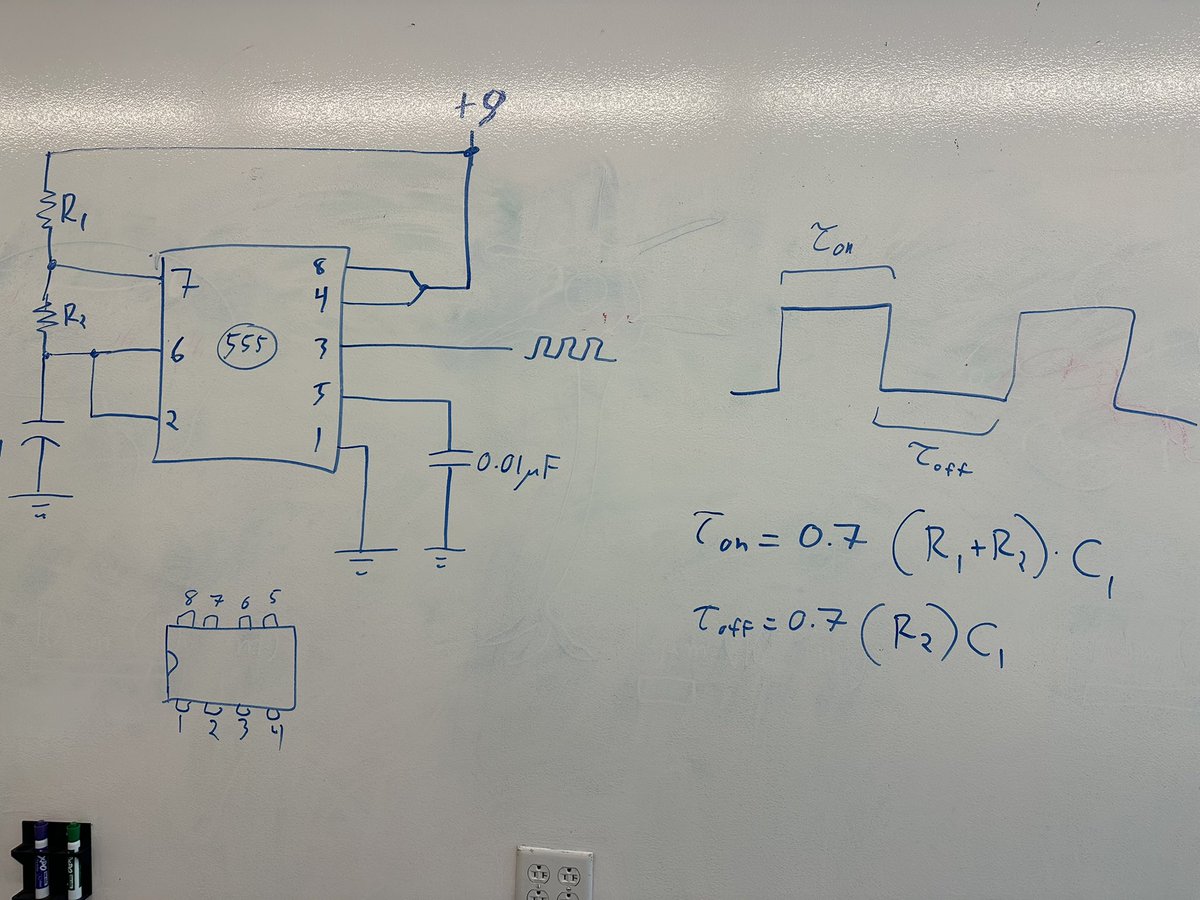 +9
R₁
R₂
7
6
2
555
8
4
3
5
1
0.01μF
8 7 6 5
1 2 3 4
τon
τoff
τon = 0.7 (R₁+R₂)·C₁
τoff = 0.7 (R₂)C₁
EXPO